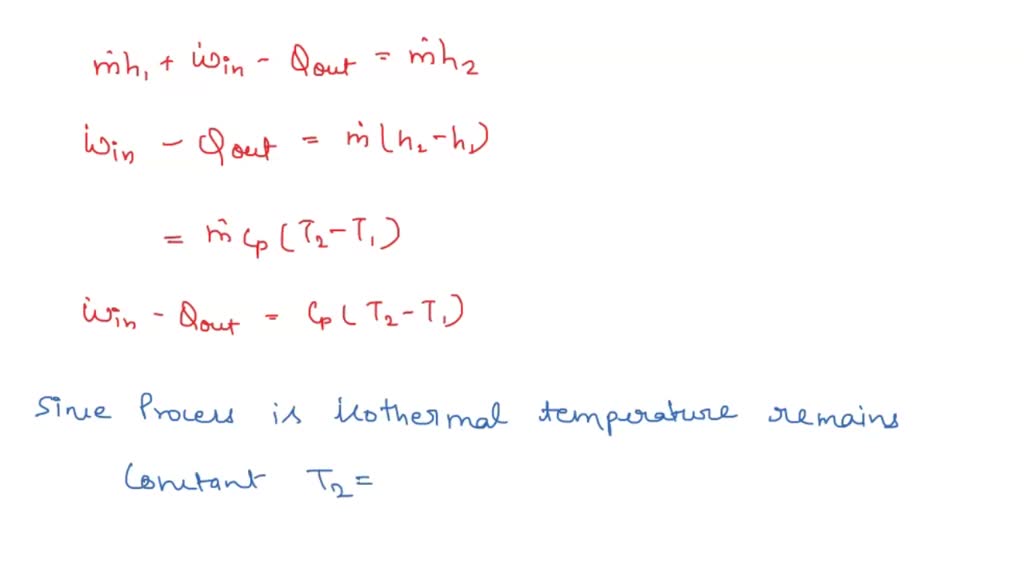 ṁh₁ + ẇin - Qout = ṁh₂
ẇin - Qout = ṁ(h₂-h₁)
= ṁ Cp (T₂-T₁)
ẇin - Qout = Cp (T₂-T₁)
Since Process is isothermal temperature remains
Constant T₂ =